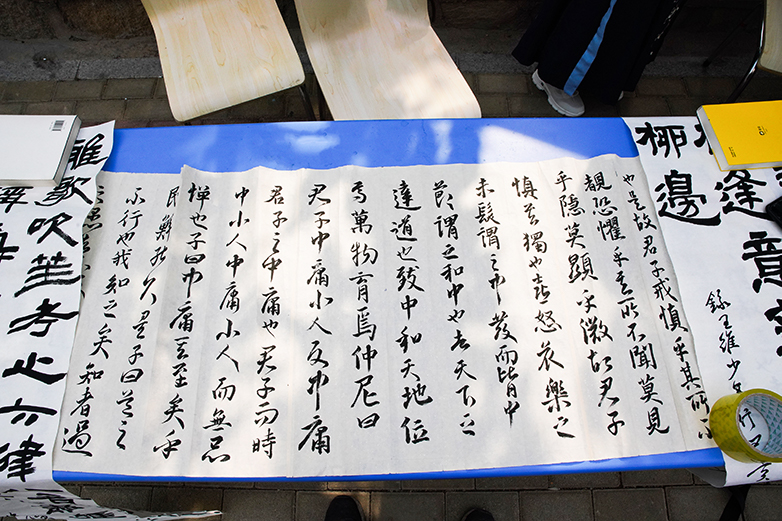 逢意
柳邊
錄王維少
行
也是故君子戒慎乎其所不
覩恐懼乎其所不聞莫見
乎隱莫顯乎微故君子
慎其獨也喜怒哀樂之
未發謂之中發而皆中
節謂之和中也者天下之
達道也致中和天地位
焉萬物育焉仲尼曰
君子中庸小人反中庸
君子之中庸也君子而時
中小人中庸小人而無忌
憚也子曰中庸其至矣乎
民鮮能久矣子曰道之
不行也我知之矣知者過
雖歌吹笙考之六律